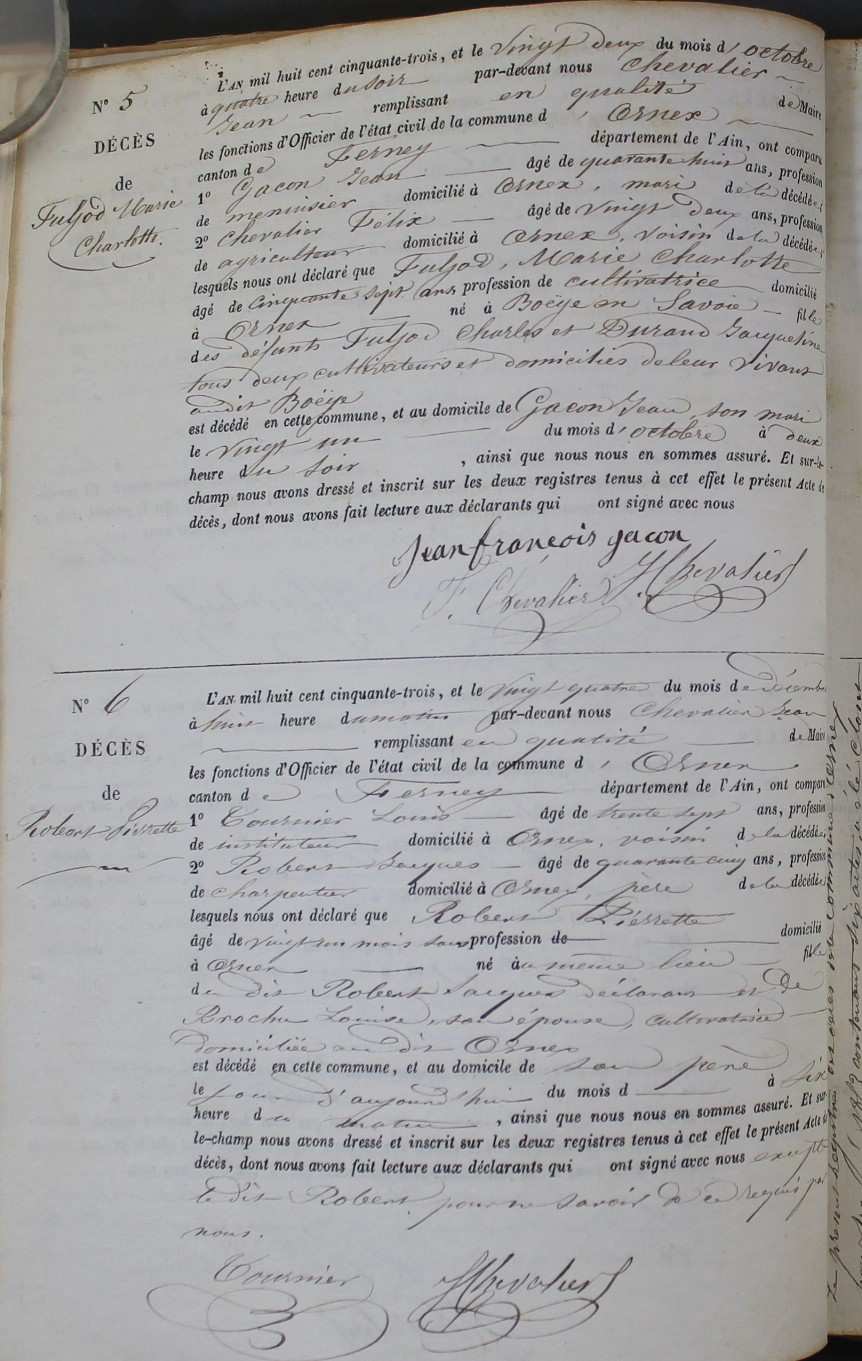 N° 5
DÉCÈS
de
Fuljod Marie
Charlotte.
L'AN mil huit cent cinquante-trois, et le vingt deux du mois d'octobre
à quatre heure du soir par-devant nous Chevalier
Jean remplissant en qualité de Maire
les fonctions d'Officier de l'état civil de la commune d'Ornex
canton de Ferney département de l'Ain, ont comparu
1° Gacon Jean âgé de quarante huit ans, profession
de menuisier domicilié à Ornex, mari de la décédée
2° Chevalier Félix âgé de vingt deux ans, profession
de agriculteur domicilié à Ornex, voisin de la décédée
lesquels nous ont déclaré que Fuljod, Marie Charlotte
âgé de cinquante sept ans, profession de cultivatrice domicilié
à Ornex né à Boëge en Savoie fille
des défunts Fuljod Charles et Durand Jacqueline
tous deux cultivateurs et domiciliés de leur vivant
audit Boëge
est décédé en cette commune, et au domicile de Gacon Jean son mari
le vingt un du mois d'octobre à deux
heure du soir, ainsi que nous nous en sommes assuré. Et sur-le-
champ nous avons dressé et inscrit sur les deux registres tenus à cet effet le présent Acte de
décès, dont nous avons fait lecture aux déclarants qui ont signé avec nous
Jean françois gacon
F. Chevalier J Chevalier
N° 6
DÉCÈS
de
Robert Pierrette
L'AN mil huit cent cinquante-trois, et le vingt quatre du mois de décembre
à huit heure du matin par-devant nous Chevalier Jean
remplissant en qualité de Maire
les fonctions d'Officier de l'état civil de la commune d'Ornex
canton de Ferney département de l'Ain, ont comparu
1° Tournier Louis âgé de trente sept ans, profession
de instituteur domicilié à Ornex, voisin de la décédée
2° Robert Jacques âgé de quarante cinq ans, profession
de charpentier domicilié à Ornex, père de la décédée
lesquels nous ont déclaré que Robert Pierrette
âgé de vingt un mois sans profession de domicilié
à Ornex né au même lieu fille
du dit Robert Jacques déclarant et de
Brochu Louise, son épouse, cultivatrice
domiciliée au dit Ornex
est décédé en cette commune, et au domicile de son père
le jour d'aujourd'hui du mois d à six
heure du matin, ainsi que nous nous en sommes assuré. Et sur-
le-champ nous avons dressé et inscrit sur les deux registres tenus à cet effet le présent Acte de
décès, dont nous avons fait lecture aux déclarants qui ont signé avec nous excepté
le dit Robert pour ne savoir de ce requis par
nous.
Tournier J Chevalier